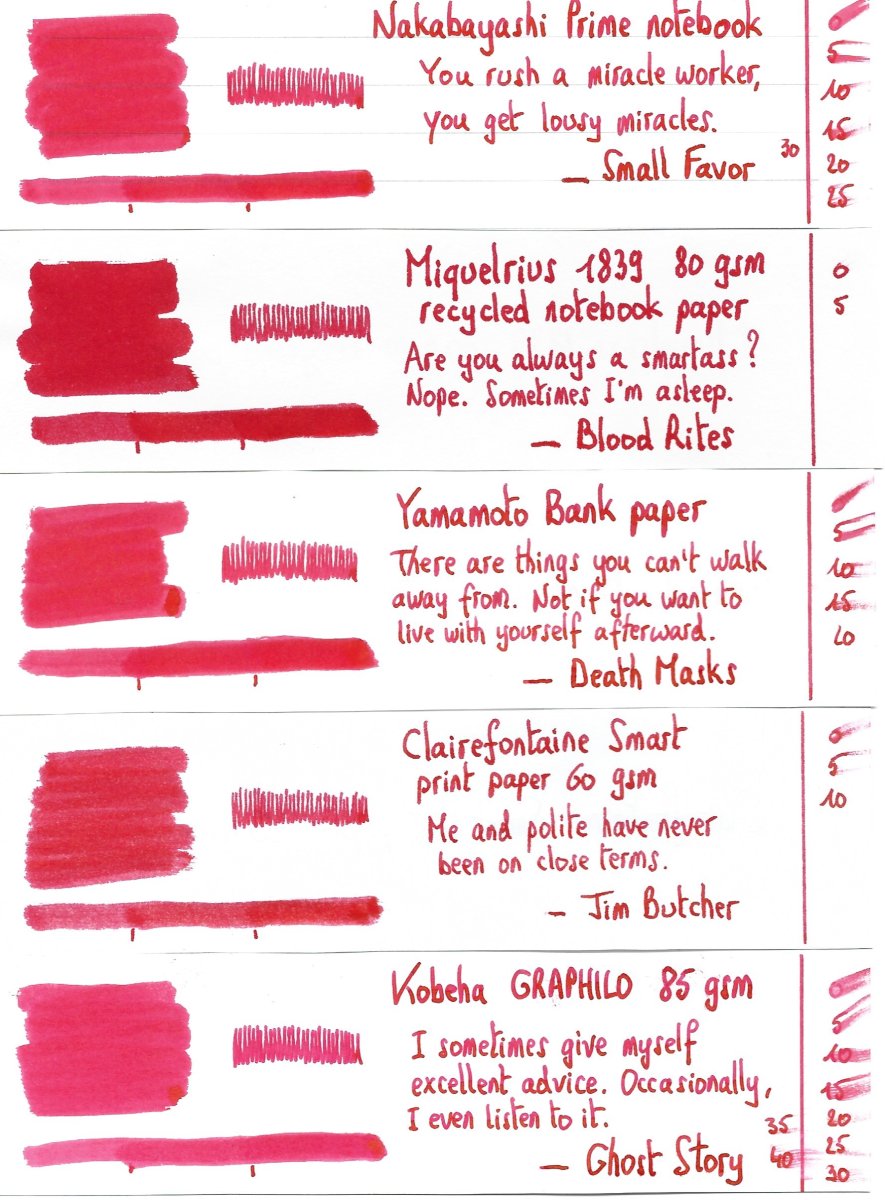 Nakabayashi Prime notebook
You rush a miracle worker,
you get lousy miracles.
— Small Favor
0
5
10
15
20
25
30
Miquelrius 1839 80 gsm
recycled notebook paper
Are you always a smartass?
Nope. Sometimes I'm asleep.
— Blood Rites
0
5
Yamamoto Bank paper
There are things you can't walk
away from. Not if you want to
live with yourself afterward.
— Death Masks
5
10
15
20
Clairefontaine Smart
print paper 60 gsm
Me and polite have never
been on close terms.
— Jim Butcher
0
5
10
Kobeha GRAPHILO 85 gsm
I sometimes give myself
excellent advice. Occasionally,
I even listen to it.
— Ghost Story
0
5
10
15
20
25
30
35
40